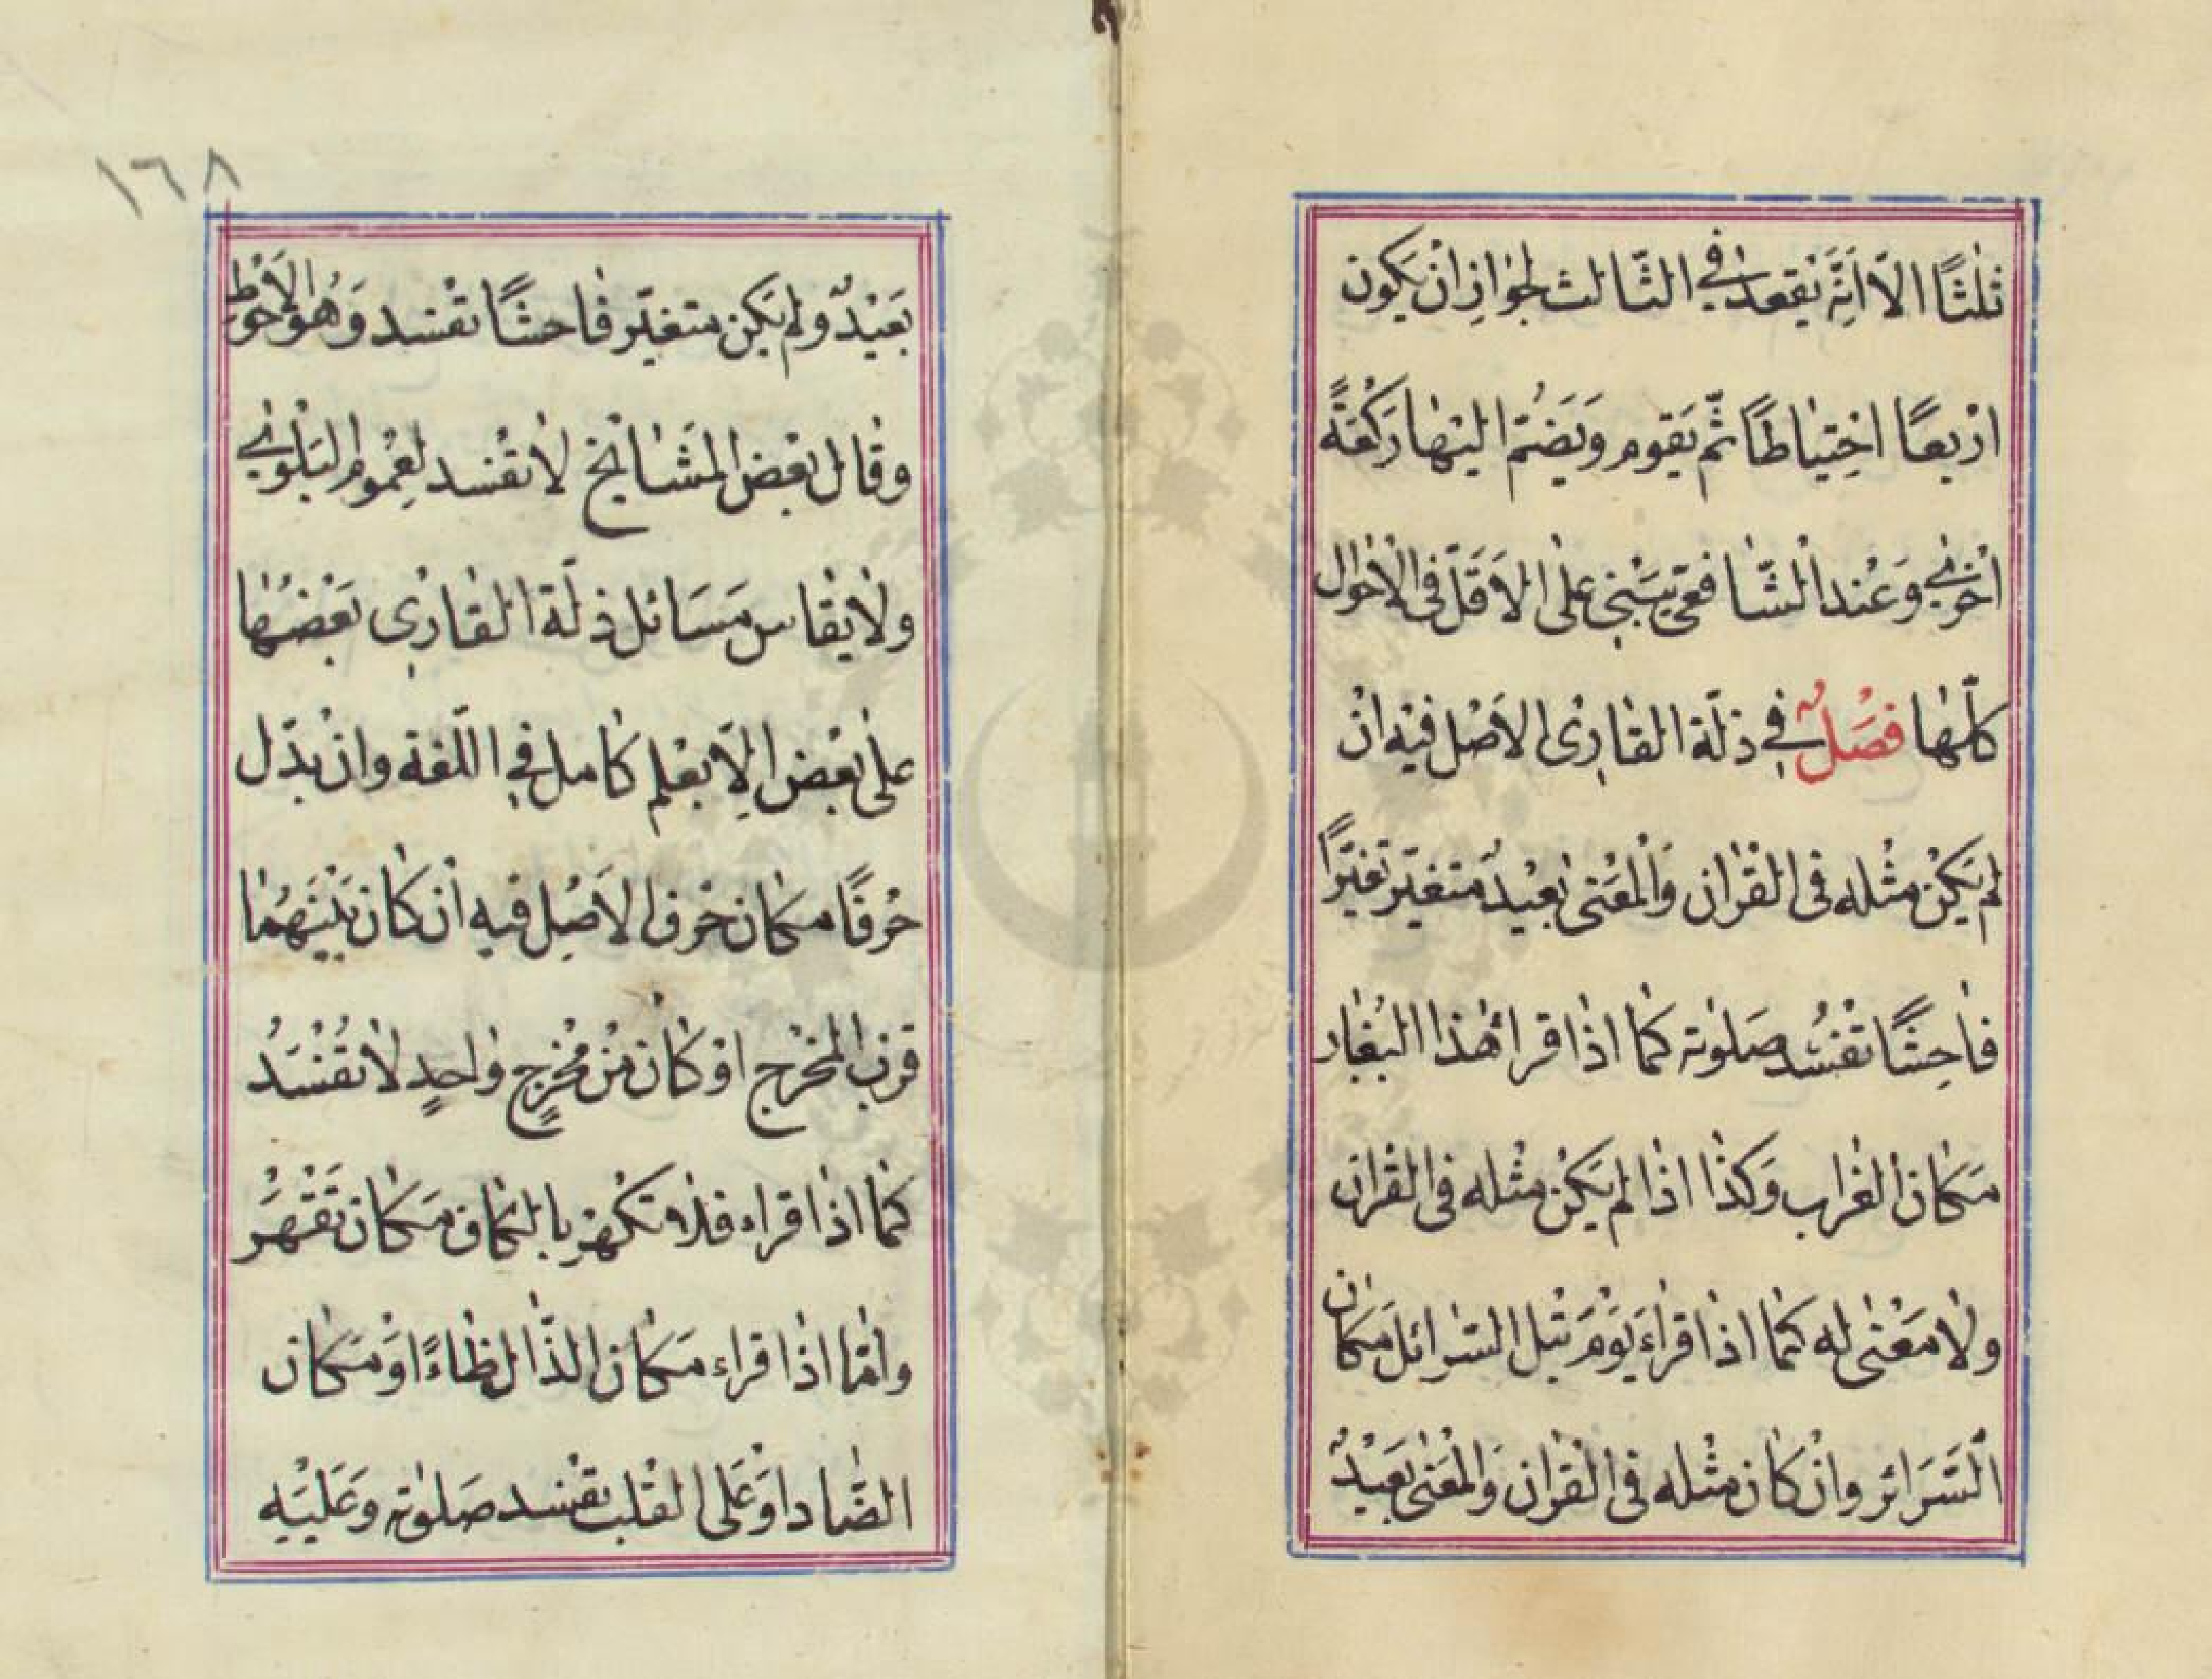 ثلثًا الّا انّه يقعد في الثّالث لجواز ان يكون
اربعًا احتياطًا ثمّ يقوم ويضمّ اليها ركعةً
اخرٰي وعند الشّافعى يبنى على الاقلّ فى الاحوال
كلّها فصل في ذلّة القارى الاصل فيه ان
لم يكن مثله فى القران والمعنى بعيد متغيّر تغيّرًا
فاحشًا تفسد صلوته كما اذا قرا هذا الغبار
مكان الغراب وكذا اذا لم يكن مثله فى القران
ولا معنى له كما اذا قراء يوم تبل السّرائل مكان
السّرائر وان كان مثله فى القران والمعنى بعيد
١٦٨
بعيد ولم يكن متغيّر فاحشًا تفسد وهو الاحوط
وقال بعض المشايخ لا تفسد لعموم البلوٰي
ولا يقاس مسائل ذلّة القارى بعضها
على بعض الّا بعلم كامل في اللّغة وان بدّل
حرفًا مكان حرف الاصل فيه ان كان بينهما
قرب المخرج او كان من مخرج واحد لا تفسد
كما اذا قراء فلا تكهر بالكاف مكان تقهر
وامّا اذا قراء مكان الذّال ظاءً او مكان
الضّاد او على القلب تفسد صلوته وعليه